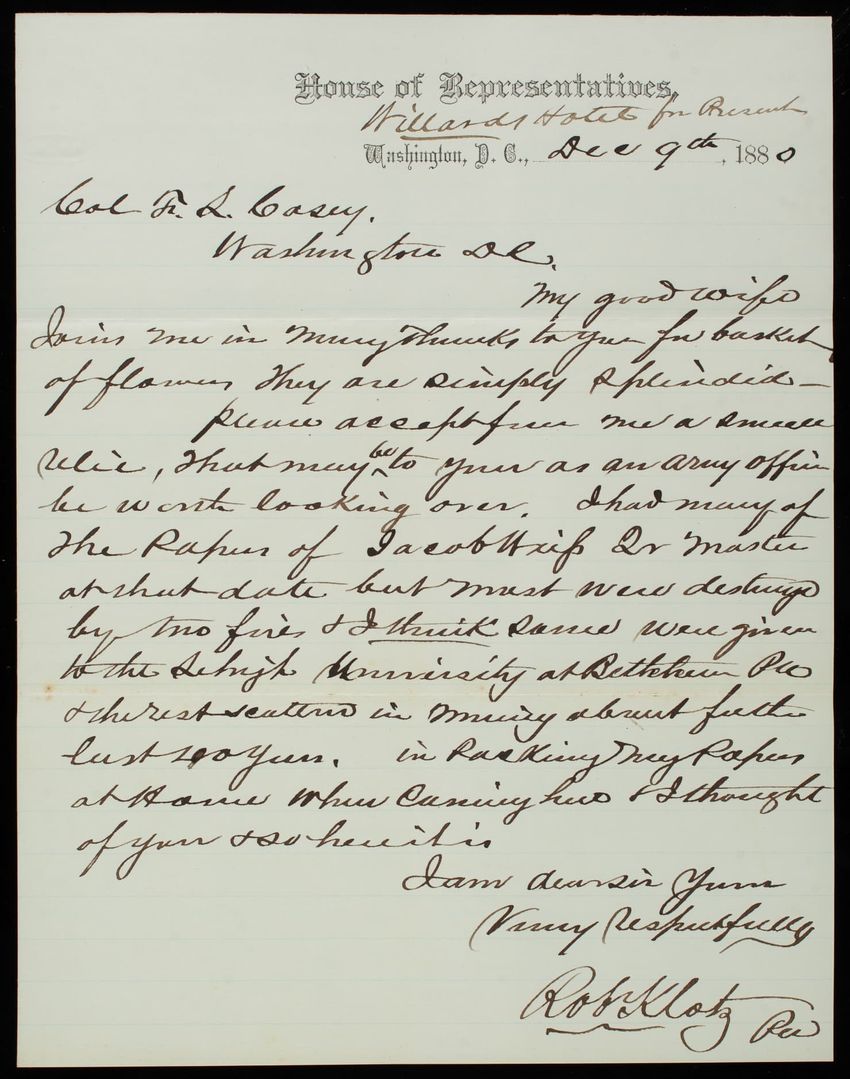 House of Representatives,
Willards Hotel for Present
Washington, D. C., Dec 9th, 1880
Col T. L. Casey.
Washington DC.
My good wife
Joins me in many thanks to you for basket
of flowers They are simply splendid —
please accept from me a small
relic, that may be to you as an army officer
be worth looking over. I had many of
the Papers of Jacob Weiss Qr Master
at that date but most were destroyed
by two fires & I think some were given
to the Lehigh University at Bethlehem Pa
& the rest scattered in moving about for the
last 100 years. in Packing my Papers
at Home when Coming here & I thought
of you & so here it is
I am dear sir Yours
Very respectfully
Robt Klotz
Pa